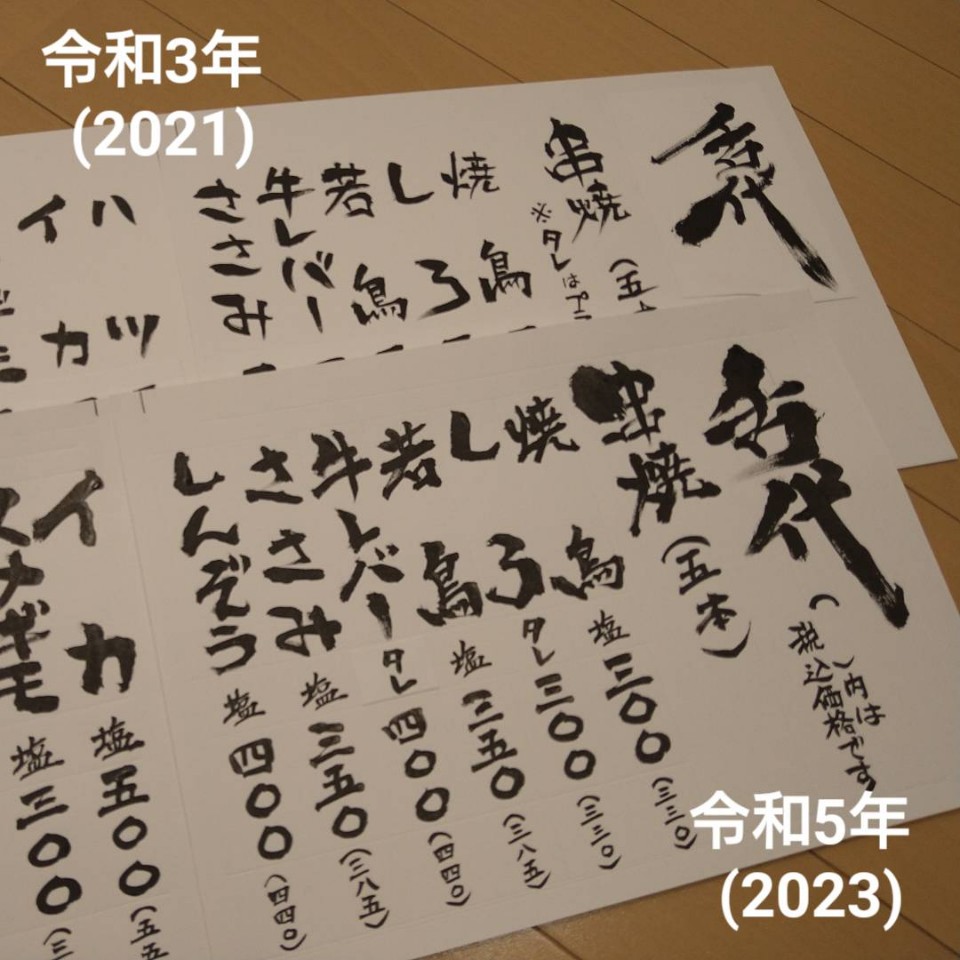 令和3年
(2021)
名代
串焼 (五
※タレは
焼鳥
しろ
若鳥
牛レバー
ささみ
ハツ
イカ
名代
( )内は
税込価格です
串焼 (五本)
焼鳥 塩 三〇〇 (三三〇)
しろ タレ 三〇〇 (三三〇)
若鳥 塩 三五〇 (三八五)
牛レバー タレ 四〇〇 (四四〇)
ささみ 塩 三五〇 (三八五)
しんぞう 塩 四〇〇 (四四〇)
イカ 塩 五〇〇 (五五
スナギモ 塩 三〇〇 (三
令和5年
(2023)